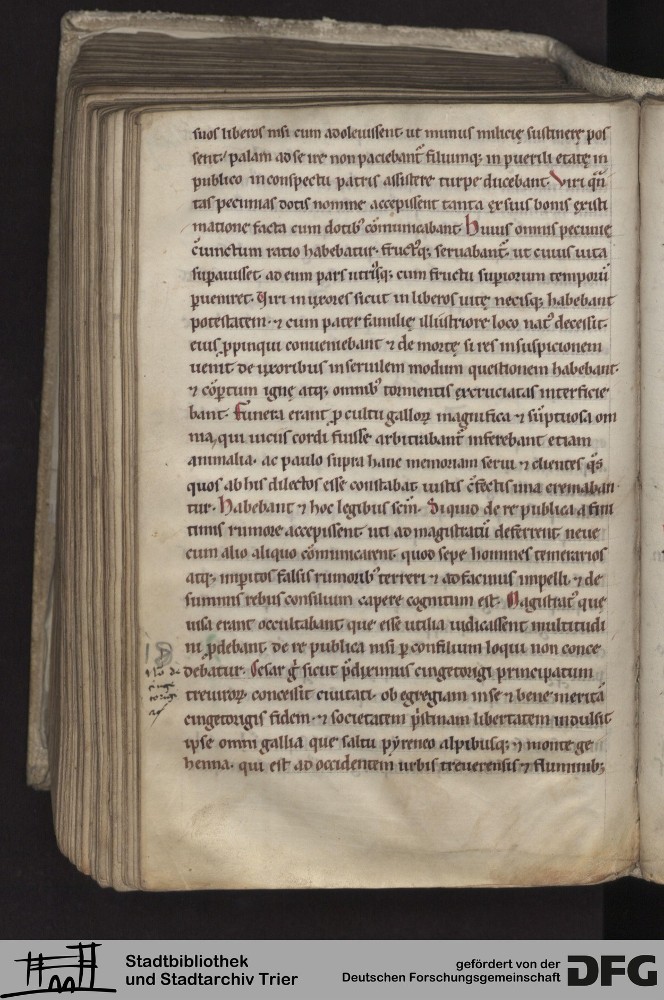 suos liberos nisi cum adoleuissent· ut munus milicię sustinerę pos
sent/ palam ad se ire non paciebant̄ filiumq; in puerili etatę in
publico in conspectu patris assistere turpe ducebant· Viri q̄n
tas pecunias dotis nomine accepissent tanta ex suis bonis existi
matione facta cum dotib᾽ cōmunicabant· Huius omnis pecunię
c̄iunctum ratio habebatur· fruct᾽q; seruabant̄· ut cuius uita
sup̱auisset· ad eum pars utri᾽sq; cum fructu sup̱iorum temporū
p̱ueniret· Viri in uxores sicut in liberos uitę necisq; habebant
potestatem· ⁊ cum pater familię illustriore loco nat᾽ decessit·
eius p̱pinqui conueniebant ⁊ de mortę si res in suspicionem
uenit· de uxoribus in seruilem modum questionem habebant·
⁊ cōp̱tum ignę atq; omnib᾽ tormentis excruciatas interficie
bant· Funera erant p̱ cultu galloꝝ magnifica ⁊ sūptuosa om
nia, qui uiuis cordi fuisse arbitrabant̄ inferebant etiam
animalia· ac paulo supra hanc memoriam serui ⁊ clientes q̄s
quos ab his dilectos esse constabat iustis c̄fectis una cremaban
tur· Habebant ⁊ hoc legibus scīm· Siquid de re publica a fini
timis rumore accepissent uti ad magistratū deferrent neue
cum alio aliquo cōmunicarent· quod sepe homines temerarios
atq; imp̱itos falsis rumorib᾽ terreri ⁊ ad facinus impelli· ⁊ de
summis rebus consilium capere cognitum est· Magistrat᾽ que
uisa erant occultabant· que esse utilia iudicassent multitudi
ni p̱debant· de re publica nisi p̱ consilium loqui non conce
debatur· Cesar ḡ sicut p̄diximus cingetorigi principatum
treuiroꝝ concessit ciuitati· ob egregiam in se ⁊ bene meritā
cingetorigis fidem· ⁊ societatem p̄stinam libertatem indulsit
ipse omni gallia que saltu pyreneo alpibusq; ⁊ monte ge
henna· qui est ad occidentem urbis treuerensis ⁊ fluminib;
Stadtbibliothek
und Stadtarchiv Trier
gefördert von der
Deutschen Forschungsgemeinschaft
DFG